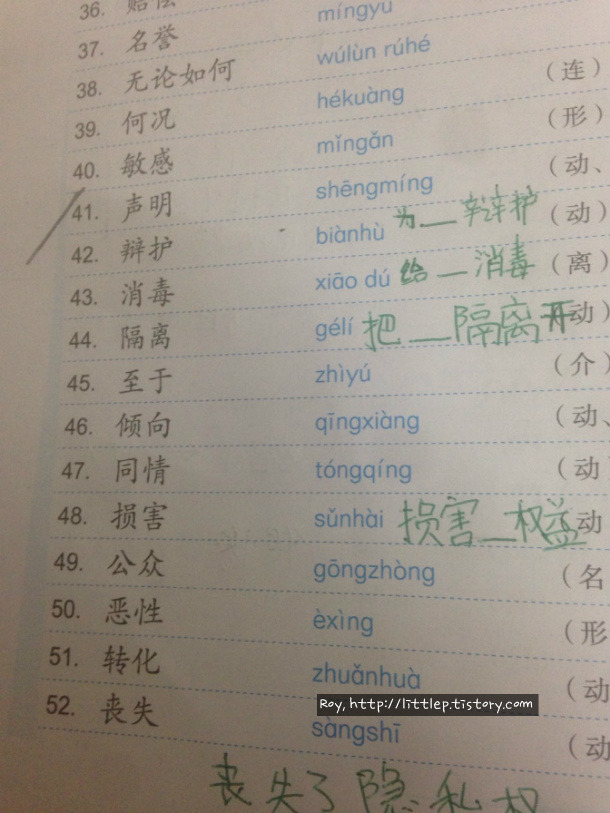 36. 赔偿
37. 名誉 míngyù
38. 无论如何 wúlùn rúhé
39. 何况 hékuàng （连）
40. 敏感 mǐngǎn （形）
41. 声明 shēngmíng （动、
42. 辩护 biànhù 为__辩护 （动）
43. 消毒 xiāo dú 给__消毒 （离）
44. 隔离 gélí 把__隔离开 动）
45. 至于 zhìyú （介）
46. 倾向 qīngxiàng （动、
47. 同情 tóngqíng （动）
48. 损害 sǔnhài 损害__权益 动
49. 公众 gōngzhòng （名
50. 恶性 èxìng （形
51. 转化 zhuǎnhuà （动
Roy, http://littlep.tistory.com
52. 丧失 sàngshī （动
丧失了隐私权